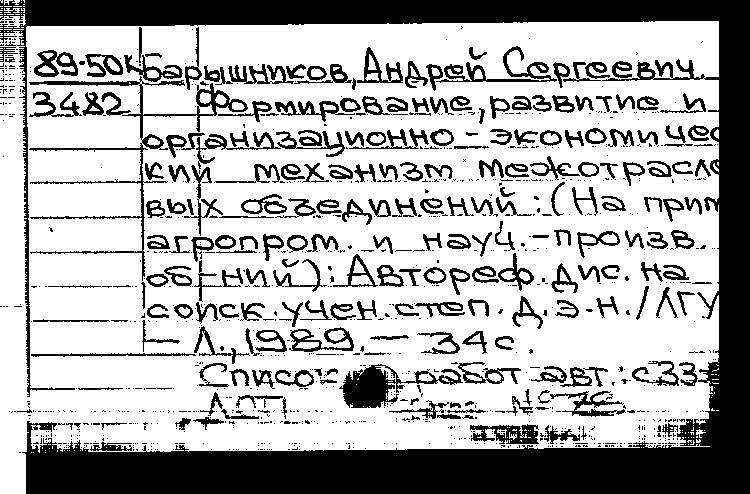 89-50к Барышников, Андрей Сергеевич.
3482 Формирование, развитие и
организационно-экономичес
кий механизм межотрасле
вых объединений: (На прим
агропром. и науч.-произв.
об-ний): Автореф. дис. на
соиск. учен. степ. д.э.н./ЛГУ
— Л., 1989. — 34 с.
Список работ авт.: с 33